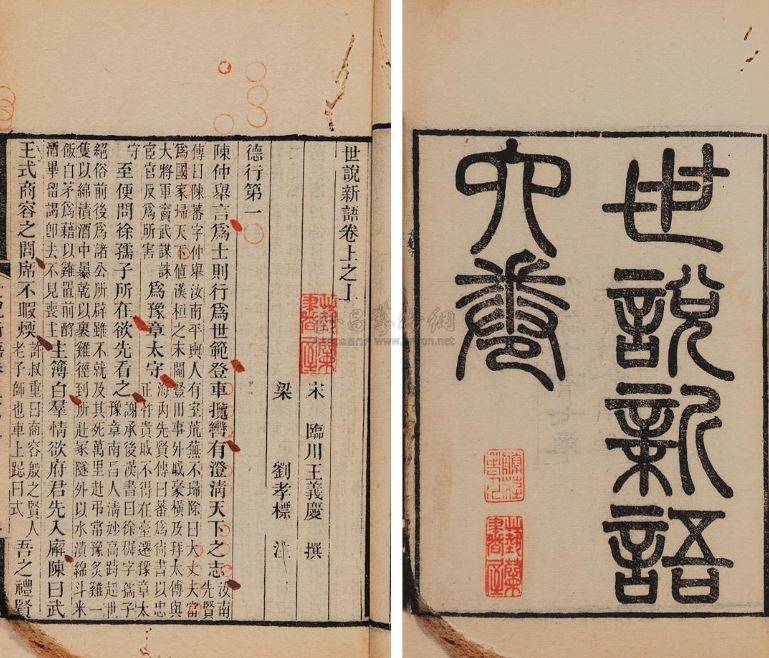 世說新語
六卷
世說新語卷上之上
宋 臨川王義慶 撰
梁 劉孝標 注
德行第一
陳仲舉言爲士則行爲世範登車攬轡有澄清天下之志
汝南先賢
傳曰陳蕃字仲舉汝南平輿人有室荒蕪不埽除曰大丈夫當
爲國家埽天下值漢桓之末閹豎用事外戚豪橫及拜太傅與
大將軍竇武謀誅
宦官反爲所害
爲豫章太守
海內先賢傳曰蕃爲尚書以忠
正忤貴戚不得在臺遷豫章太
守
至便問徐孺子所在欲先看之
謝承後漢書曰徐穉字孺子
豫章南昌人清妙高跱超世
絕俗前後爲諸公所辟雖不就及其死萬里赴弔常豫炙雞一
隻以綿漬酒中暴乾以裹雞徑到所赴冢隧外以水漬綿斗米
飯白茅爲藉以雞置前酹
酒畢留謁卽去不見喪主
主簿白羣情欲府君先入廨陳曰武
王式商容之閭席不暇煖
許叔重曰商容殷之賢人
老子師也車上跽曰式
吾之禮賢